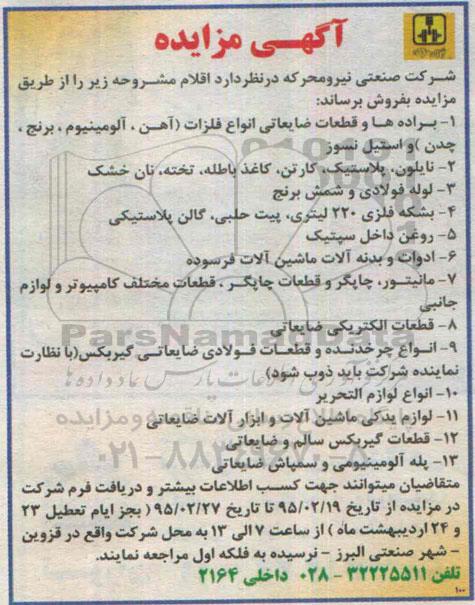 آگهـی مزایده
شـرکت صنعتی نیرومحرکه درنظردارد اقلام مشـروحه زیر را از طریق
مزایده بفروش برساند:
۱- بـراده هـا و قطعات ضایعاتی انواع فلزات (آهـن ، آلومینیوم ، برنج ،
چدن )و استیل نسوز
۲- نایلون، پلاستیک، کارتن، کاغذ باطله، تخته، نان خشک
۳- لوله فولادی و شمش برنج
۴- بشکه فلزی ۲۲۰ لیتری، پیت حلبی، گالن پلاستیکی
۵- روغن داخل سپتیک
۶- ادوات و بدنه آلات ماشین آلات فرسوده
۷- مانیتور، چاپگر و قطعات چاپگـر ، قطعات مختلف کامپیوتر و لوازم
جانبی
۸- قطعات الکتریکی ضایعاتی
۹- انـواع چرخدنـده و قطعـات فـولادی ضایعاتـی گیربکس(با نظارت
نماینده شرکت باید ذوب شود)
۱۰- انواع لوازم التحریر
۱۱- لوازم یدکی ماشین آلات و ابزار آلات ضایعاتی
۱۲- قطعات گیربکس سالم و ضایعاتی
۱۳- پله آلومینیومی و سمپاش ضایعاتی
متقاضیان میتوانند جهت کسـب اطلاعات بیشتر و دریافت فرم شرکت
در مزایده از تاریخ ۹۵/۰۲/۱۹ تا تاریخ ۹۵/۰۲/۲۷ ( بجز ایام تعطیل ۲۳
و ۲۴ اردیبهشت ماه ) از ساعت ۷ الی ۱۳ به محل شرکت واقع در قزوین
- شهر صنعتی البرز - نرسیده به فلکه اول مراجعه نمایند.
تلفن ۳۲۲۲۵۵۱۱ - ۰۲۸ داخلی ۲۱۶۴
۱۰۰
ParsNamadData
۰۲۱-۸۸۳۴۹۶۷۰-۵